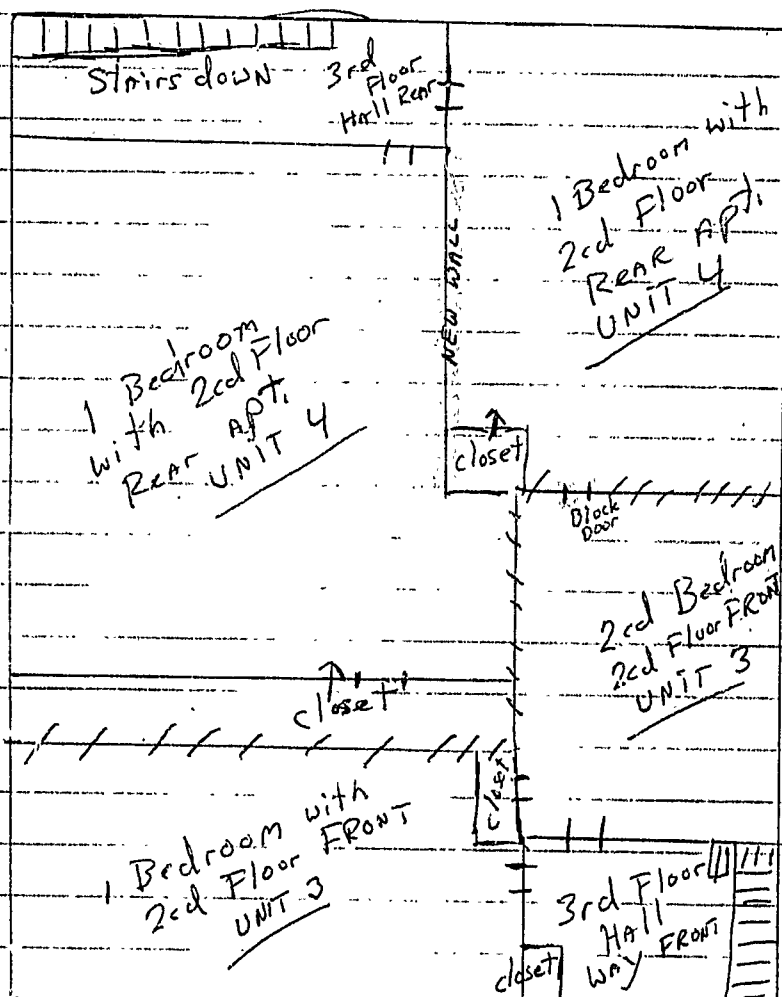 Stairs down
3rd
Floor
Hall Rear
1 Bedroom with
2cd Floor
Rear Apt.
UNIT 4
NEW WALL
1 Bedroom
with 2cd Floor
Rear Apt.
UNIT 4
closet
Block
Door
2cd Bedroom
2cd Floor FRONT
UNIT 3
closet
closet
1 Bedroom with
2cd Floor FRONT
UNIT 3
3rd Floor
HAll
WAY FRONT
closet